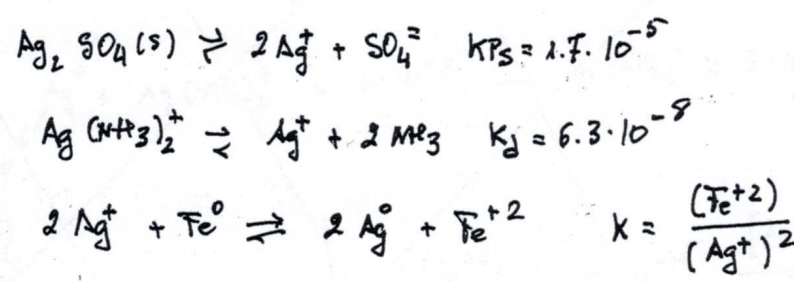 Ag₂ SO₄ (s) ⇌ 2 Ag⁺ + SO₄⁼ KPs = 1.7. 10⁻⁵
Ag (NH₃)₂⁺ ⇌ Ag⁺ + 2 NH₃ Kd = 6.3·10⁻⁸
2 Ag⁺ + Fe⁰ ⇌ 2 Ag⁰ + Fe⁺² K = (Fe⁺²) / (Ag⁺)²